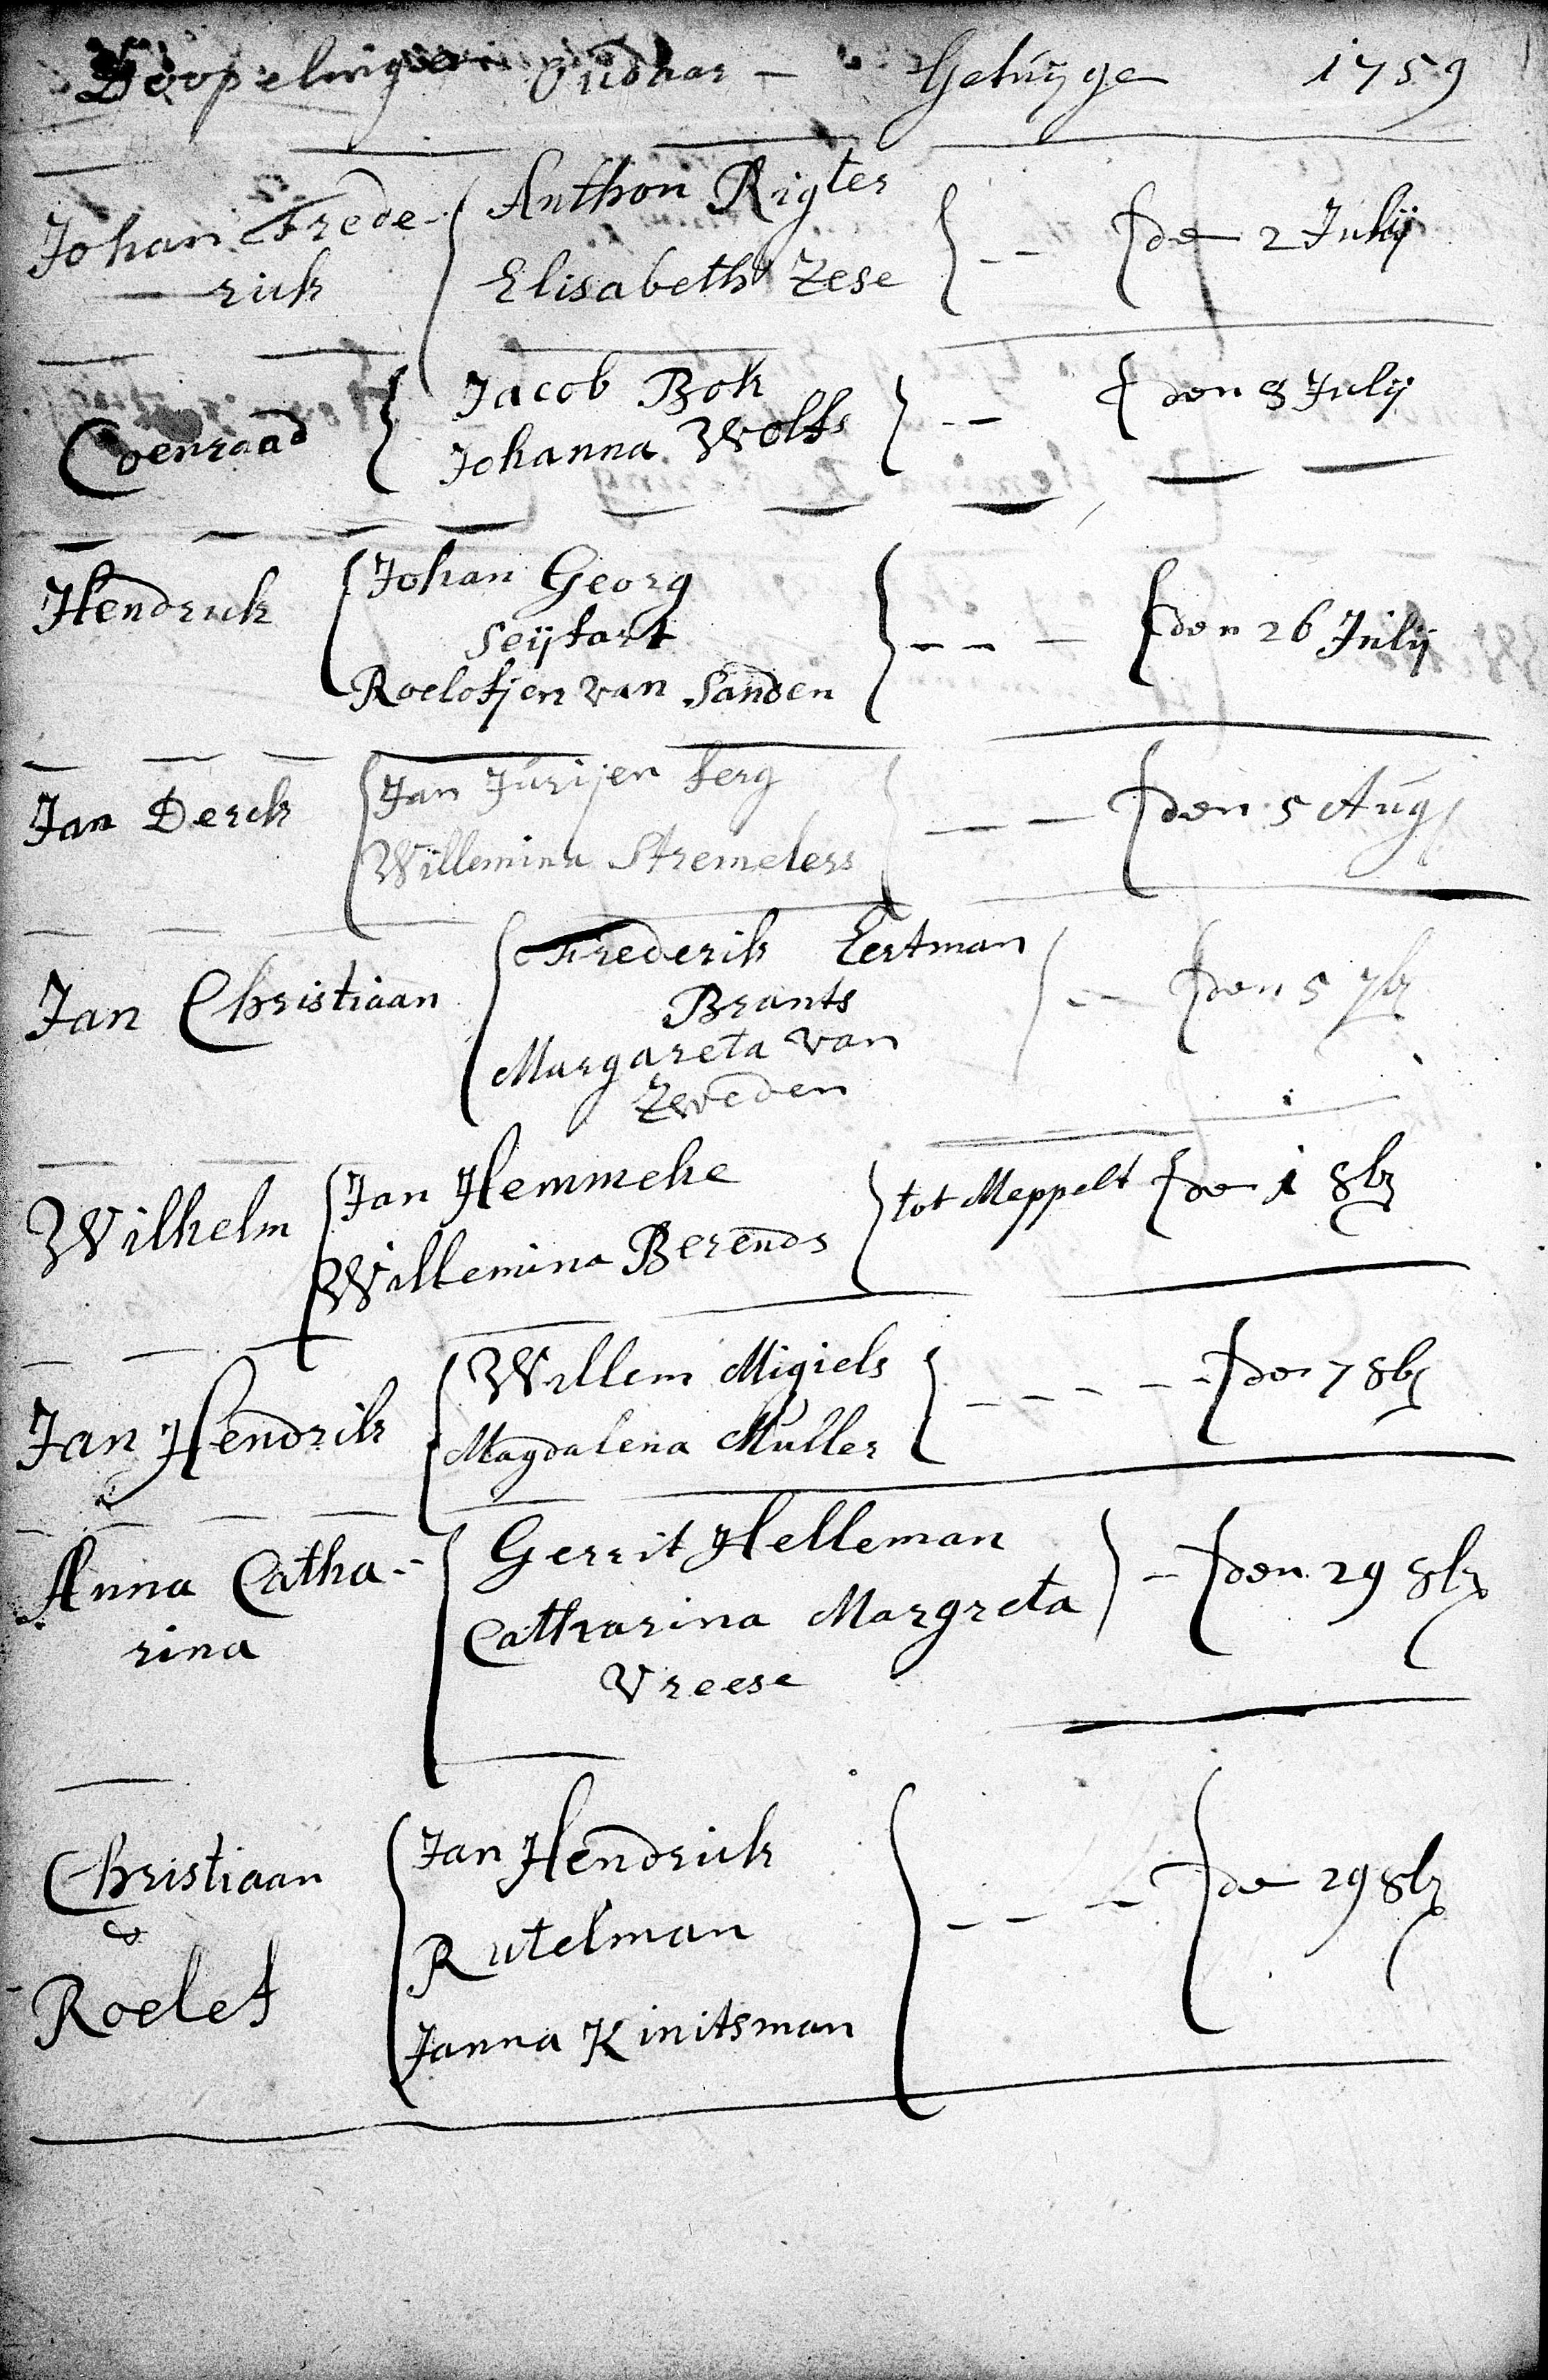 Doopelinge Oudhar - Getuyge 1759
Johan Frede-
rick
Anthon Rigter
Elisabeth Zese
de 2 Julij
Coenraad
Jacob Bok
Johanna Wolfs
den 8 Julij
Hendrick
Johan Georg
Seijfart
Roelofjen van Sanden
den 26 Julij
Jan Derck
Jan Jurijen ferg
Willemina Stremelers
den 5 Aug
Jan Christiaan
Frederik Eertman
Brants
Margareta van
Zweden
den 5 7br
Wilhelm
Jan Hemmeke
Willemina Berends
tot Meppelt de 1 8br
Jan Hendrik
Willem Migiels
Magdalena Muller
de 7 8br
Anna Catha-
rina
Gerrit Helleman
Catharina Margreta
Vreese
den 29 8br
Christiaan
&
Roelef
Jan Hendrick
Rutelman
Janna Kinitsman
de 29 8br